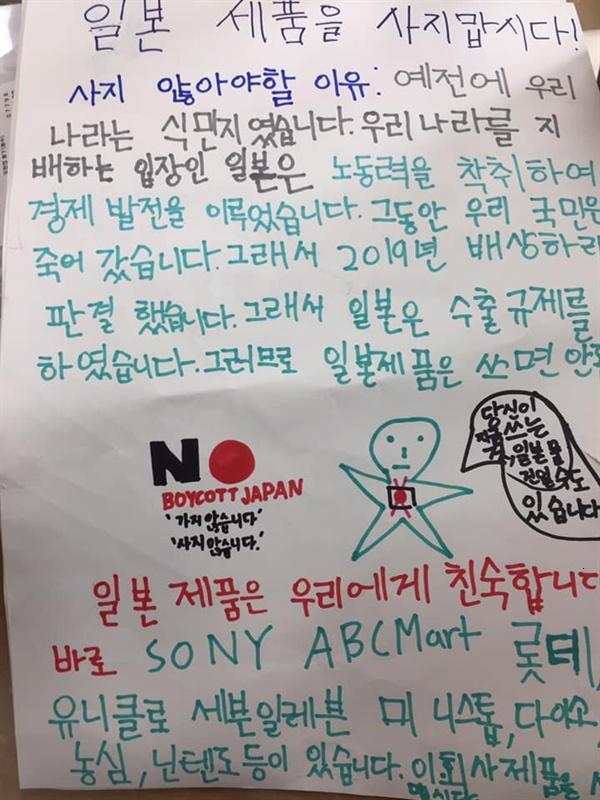 일본 제품을 사지맙시다!
사지 않아야할 이유: 예전에 우리
나라는 식민지였습니다. 우리나라를 지
배하는 입장인 일본은 노동력을 착취하여
경제 발전을 이루었습니다. 그동안 우리 국민은
죽어 갔습니다. 그래서 2019년 배상하라
판결 했습니다. 그래서 일본은 수출규제를
하였습니다. 그러므로 일본제품은 쓰면 안
당신이
쓰는
일본물
건일수도
있습니다
NO
BOYCOTT JAPAN
'가지 않습니다'
'사지 않습니다.'
일본 제품은 우리에게 친숙합니다
바로 SONY ABCMart 롯데,
유니클로 세븐일레븐 미니스톱, 다이소
농심, 닌텐도 등이 있습니다. 이회사제품을